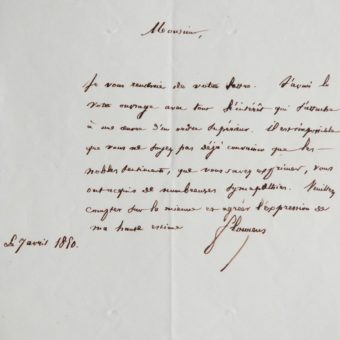 Monsieur,
Je vous remercie de votre livre. J'ai lu
votre ouvrage avec tout l'intérêt qui s'attache
à une œuvre d'un ordre supérieur. Il est impossible
que vous ne soyez pas déjà convaincu que les
nobles sentiments, que vous savez exprimer, vous
ont acquis de nombreuses sympathies. Veuillez
compter sur la mienne et agréer l'expression de
ma haute estime
Le 7 avril 1850.
Flourens